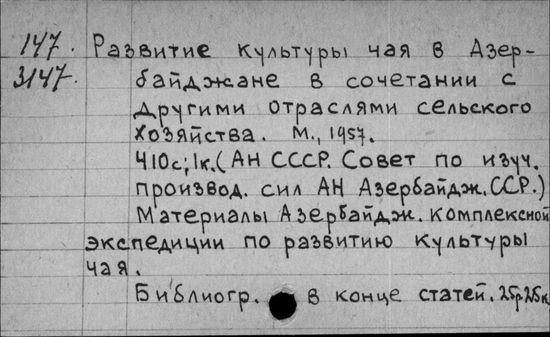 147. Развитие культуры чая в Азер-
3147. байджане в сочетании с
другими отраслями сельского
хозяйства. М., 1957.
410с; 1к. (АН СССР. Совет по изуч.
производ. сил АН Азербайдж. ССР.)
Материалы Азербайдж. комплексной
экспедиции по развитию культуры
чая.
Библиогр. в конце статей. 25р 25к